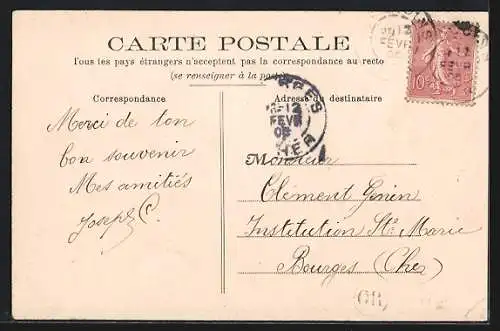 CARTE POSTALE
Tous les pays étrangers n'acceptent pas la correspondance au recto
(se renseigner à la poste)
Correspondance
Adresse du destinataire
Merci de ton
bon souvenir
Mes amitiés
Joseph C.
12
FEVR
Monsieur
Clément
Institution Ste Marie
Bourges (Cher)
10